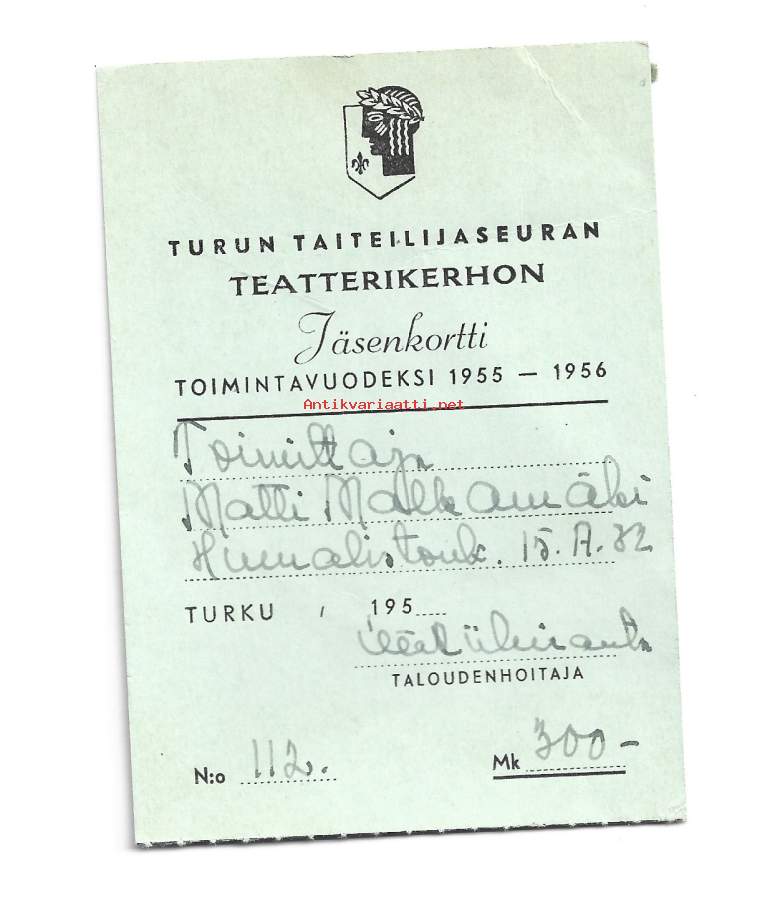 TURUN TAITEILIJASEURAN
TEATTERIKERHON
Jäsenkortti
TOIMINTAVUODEKSI 1955 — 1956
Antikvariaatti.net
Toimittaja
Matti Malkamäki
Humalistonk. 15. A. 32
TURKU / 195
TALOUDENHOITAJA
N:o 112.
Mk 300-